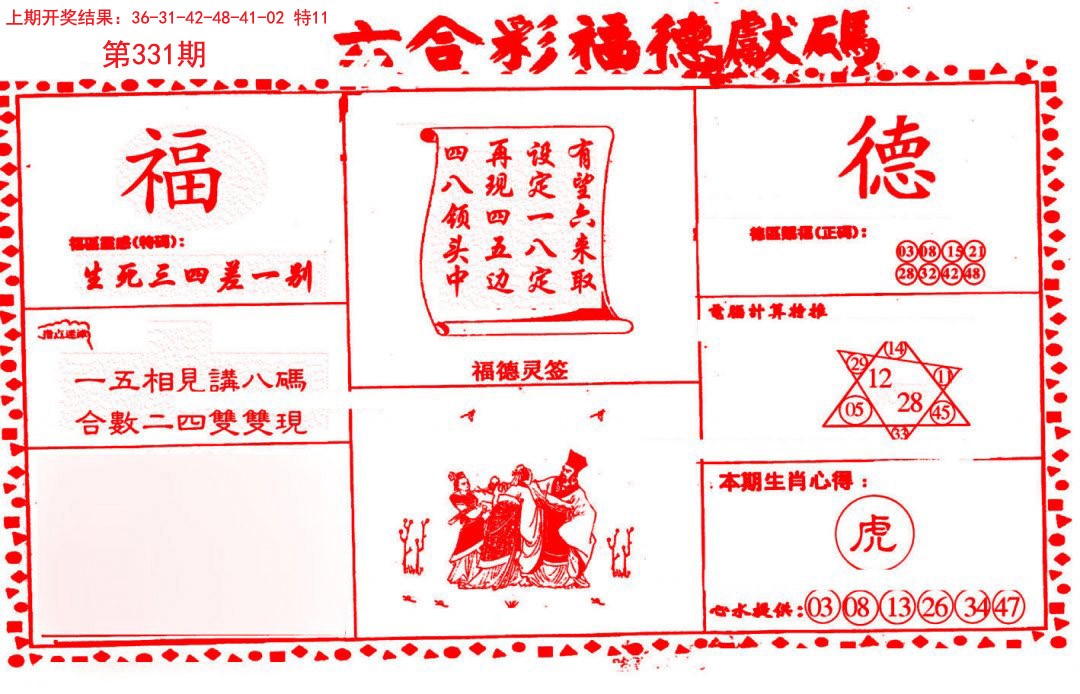 上期开奖结果: 36-31-42-48-41-02 特11
第331期
六合彩福德獻碼
福
德區靈感(特碼):
生死三四差一别
一五相見講八碼
合數二四雙雙現
有望六来取
设定一八定
再现四五边
四八领头中
福德灵签
德
德區賜福(正碼):
03 08 15 21
28 32 42 48
電腦計算檢推
14
29 12 11
05 28 45
33
本期生肖心得:
虎
心水提供: 03 08 13 26 34 47